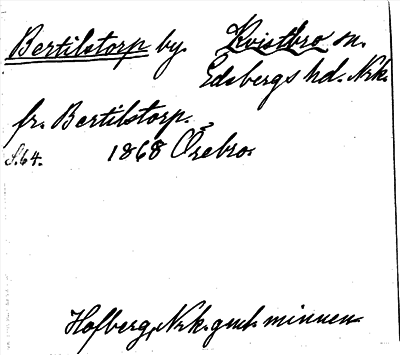 Bertilstorp by. Kvistbro sn.
Edsbergs hd. Nrk.
fr. Bertilstorp.
S.64. 1868 Örebro.
Hofberg, Nrk. gml. minnen